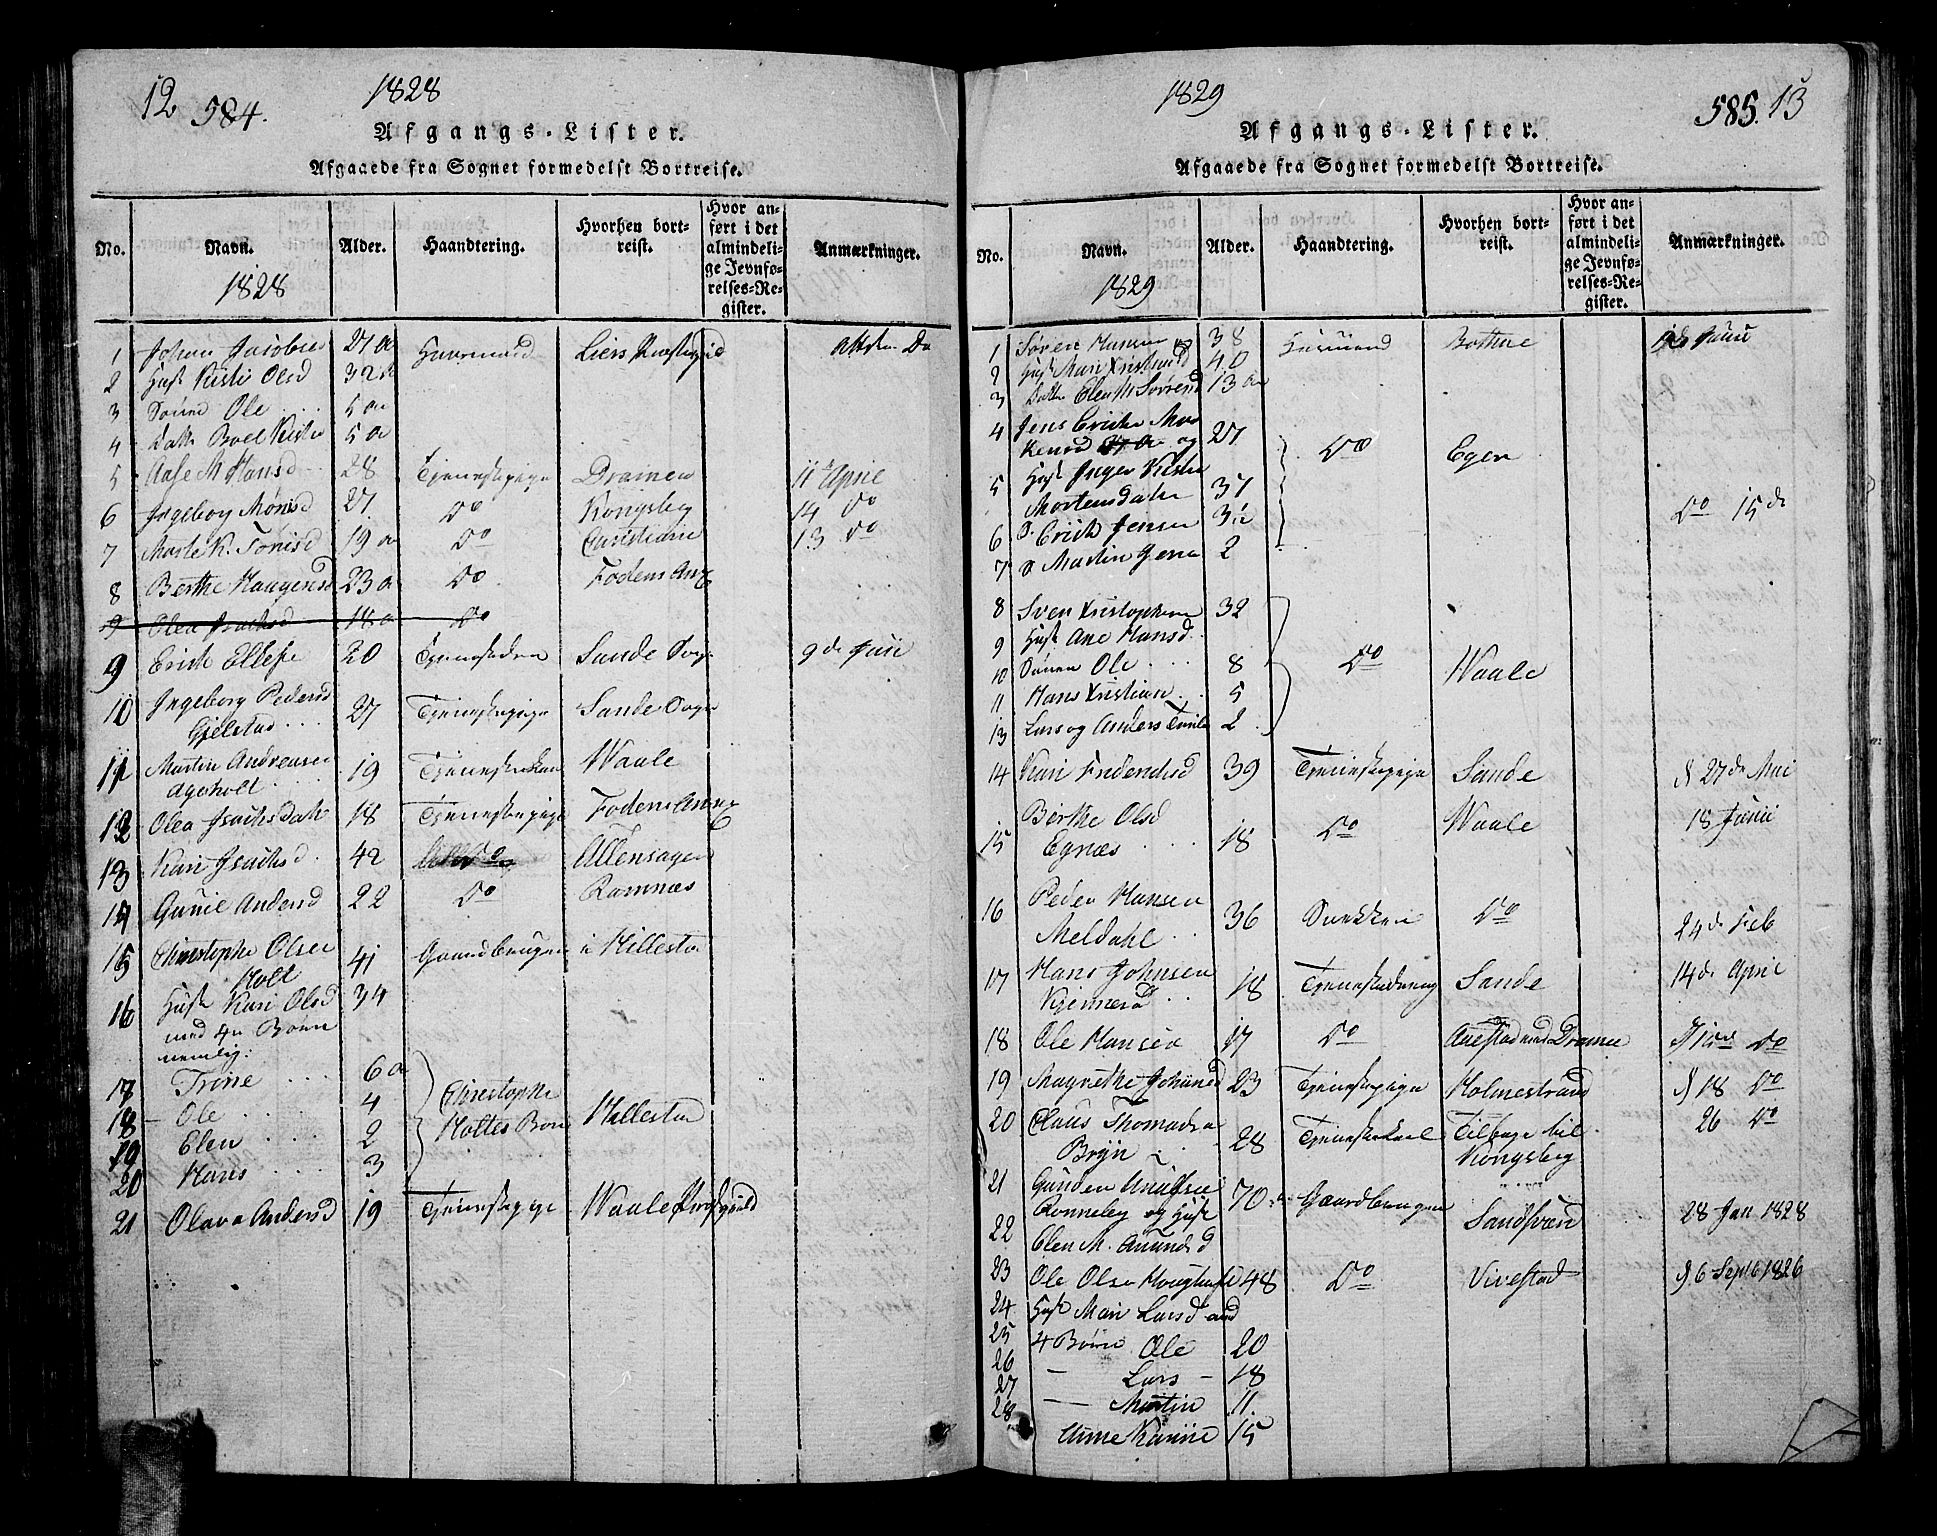 12 584.
1828
Afgangs-Lister.
Afgaaede fra Sognet formedelst Bortreise.
No. Navn. Alder. Haandtering. Hvorhen bortreist. Hvor anført i det almindelige Jevnførelses-Register. Anmærkninger.
1828
1 Johan Jacobsen 27 a Huusmand Liers Præstegield
2 Hust Kisti Olsd 32
3 Sønn Ole 5 a
4 Datt Boel Kistie 5 a
5 Aase M Hansd 28 Tjenestepige Dramen 11 April
6 Ingeborg 27 Do Kongsbeg 14 Do
7 Marte K. Tønisd 19 a Do Christiania 13 Do
8 Berthe Haugensd 23 a Do Fodens Anx
9 Olea Isachsd 18 a Do
9 Erich Ellefse 20 Tjenestedren Sande Sogn 9 de Juni
10 Ingeborg Pedersd
Gjelstad 27 Tjenestepige Sande Sogn
11 Martin Andreasen
Ageholt 19 Tjenestekaal Waale
12 Olea Isachsdatt 18 Tjenestepige Fodens Anx
13 Kari Isachsd 42 Do
14 Gunil Andersd 22 Do Ramnæs
15 Christophe Olsen
Holt 41 Gaardbruger i Hillestad
16 Hust Kari Olsd 34
med 4 Børn
nemlig:
17 Trine 6 a
18 Ole 4 Christophe
19 Elen 2 Holtes Børn Hillestad
20 Hans 3
21 Olava Andersd 19 Tjenestepige Waale Præstgield
1829
585. 13
Afgangs-Lister.
Afgaaede fra Sognet formedelst Bortreise.
No. Navn. Alder. Haandtering. Hvorhen bortreist. Hvor anført i det almindelige Jevnførelses-Register. Anmærkninger.
1829
1 Søren Hansen og 38 Husmand Bothne Juni
2 Hust Mari Kristiansd 40
3 Datt Elen M Sørensd 13 a
4 Jens Erichs
og 27 Do Egen
5 Hust Inger Kistine
Mortensdatte 37 Do 15 de
6 S. Erich Jensen 3½
7 D Martin Jens 2
8 Sven Kristophersen 32
9 Hust Ane Hansd.
10 Sønnen Ole 8 Do Waale
11 Hans Kristian 5
13 Lars og Anders Tvill 2
14 Kari Fredrichsd 39 Tjenestepige Sande 27 de Mai
15 Berthe Olsd
Egnæs 18 Do Waale 18 Juni
16 Peder Hansen
Meldahl 36 Snekker Do 24 de Feb
17 Hans Johnsen
Kjennerød 18 Tjenestedreng Sande 14 de April
18 Ole Hansen 17 Do Dramen Do
19 Magrethe Johnsd 23 Tjenestepige Holmestrand 18 Do
20 Claus Thomassen
Bryn 28 Tjenestekaal Tilbage til
Kongsbeg 26 Do
21 Gunden Knudsen
Ronneby og Hust 70 Gaardbruger Sandsværd 28 Jan 1828
22 Elen M. Amundsd
23 Ole Olse 48 Do Vivestad 6 Septb 1826
24 Hust Mari Larsd med
25 4 Børn Ole 20
26 — Lars - 18
27 — Martin 11.
28 Anne Karine 15